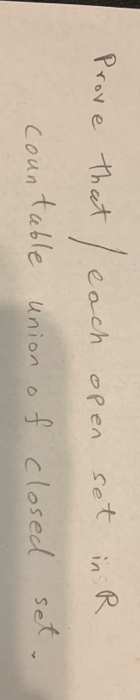 Prove that / each open set in R
countable union of closed set.